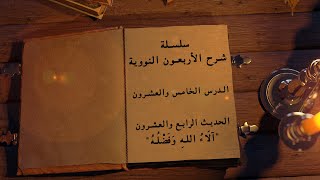 سلسلة
شرح الأربعون النووية
الدرس الخامس والعشرون
الحديث الرابع والعشرون
"آلَاءُ اللهِ وَفَضْلُهُ"